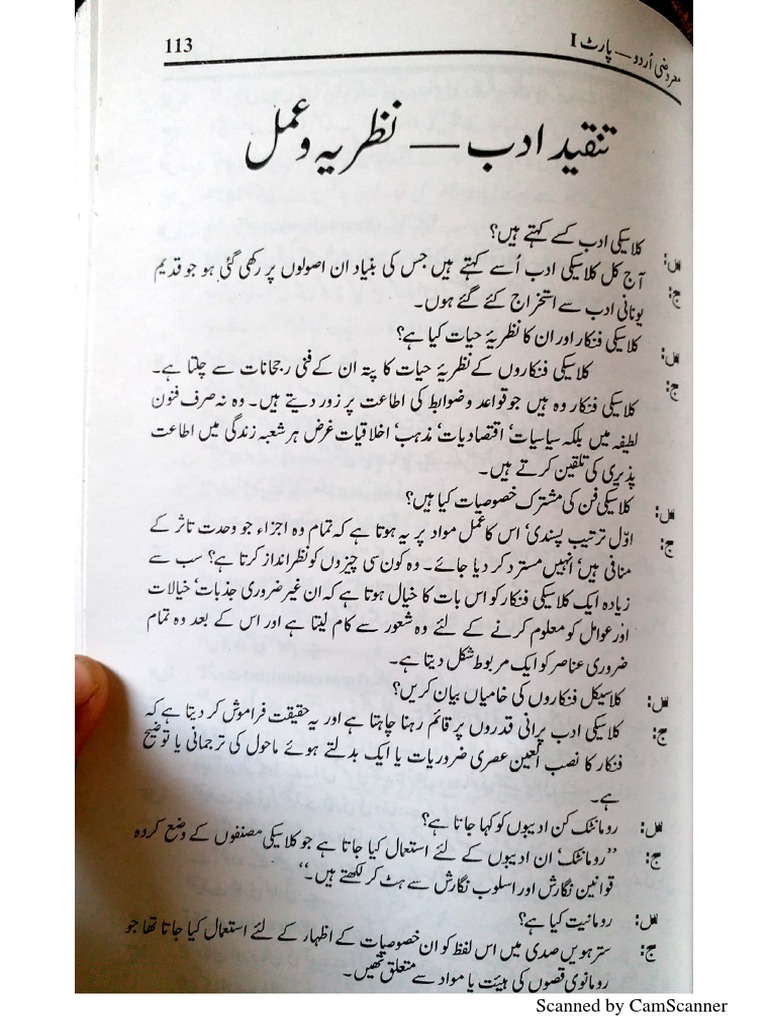 معروضی اُردو — پارٹ I
113
تنقید ادب — نظریہ و عمل
س: کلاسیکی ادب کسے کہتے ہیں؟
ج: آج کل کلاسیکی ادب اُسے کہتے ہیں جس کی بنیاد ان اصولوں پر رکھی گئی ہو جو قدیم
یونانی ادب سے استخراج کئے گئے ہوں۔
س: کلاسیکی فنکار اور ان کا نظریۂ حیات کیا ہے؟
ج: کلاسیکی فنکاروں کے نظریۂ حیات کا پتہ ان کے فنی رجحانات سے چلتا ہے۔
کلاسیکی فنکار وہ ہیں جو قواعد وضوابط کی اطاعت پر زور دیتے ہیں۔ وہ نہ صرف فنون
لطیفہ میں بلکہ سیاسیات‘ اقتصادیات‘ مذہب‘ اخلاقیات غرض ہر شعبہ زندگی میں اطاعت
پذیری کی تلقین کرتے ہیں۔
س: کلاسیکی فن کی مشترک خصوصیات کیا ہیں؟
ج: اوّل ترتیب پسندی‘ اس کا عمل مواد پر یہ ہوتا ہے کہ تمام وہ اجزاء جو وحدت تاثر کے
منافی ہیں‘ انہیں مسترد کر دیا جائے۔ وہ کون سی چیزوں کو نظر انداز کرتا ہے؟ سب سے
زیادہ ایک کلاسیکی فنکار کو اس بات کا خیال ہوتا ہے کہ ان غیر ضروری جذبات‘ خیالات
اور عوامل کو معلوم کرنے کے لئے وہ شعور سے کام لیتا ہے اور اس کے بعد وہ تمام
ضروری عناصر کو ایک مربوط شکل دیتا ہے۔
س: کلاسیکل فنکاروں کی خامیاں بیان کریں؟
ج: کلاسیکی ادب پرانی قدروں پر قائم رہنا چاہتا ہے اور یہ حقیقت فراموش کر دیتا ہے کہ
فنکار کا نصب العین عصری ضروریات یا ایک بدلتے ہوئے ماحول کی ترجمانی یا توضیح
ہے۔
س: رومانٹک کن ادیبوں کو کہا جاتا ہے؟
ج: ’’رومانٹک‘ ان ادیبوں کے لئے استعمال کیا جاتا ہے جو کلاسیکی مصنفوں کے وضع کردہ
قوانین نگارش اور اسلوب نگارش سے ہٹ کر لکھتے ہیں۔‘‘
س: رومانیت کیا ہے؟
ج: سترھویں صدی میں اس لفظ کو ان خصوصیات کے اظہار کے لئے استعمال کیا جاتا تھا جو
رومانوی قصوں کی ہیئت یا مواد سے متعلق تھیں۔
Scanned by CamScanner